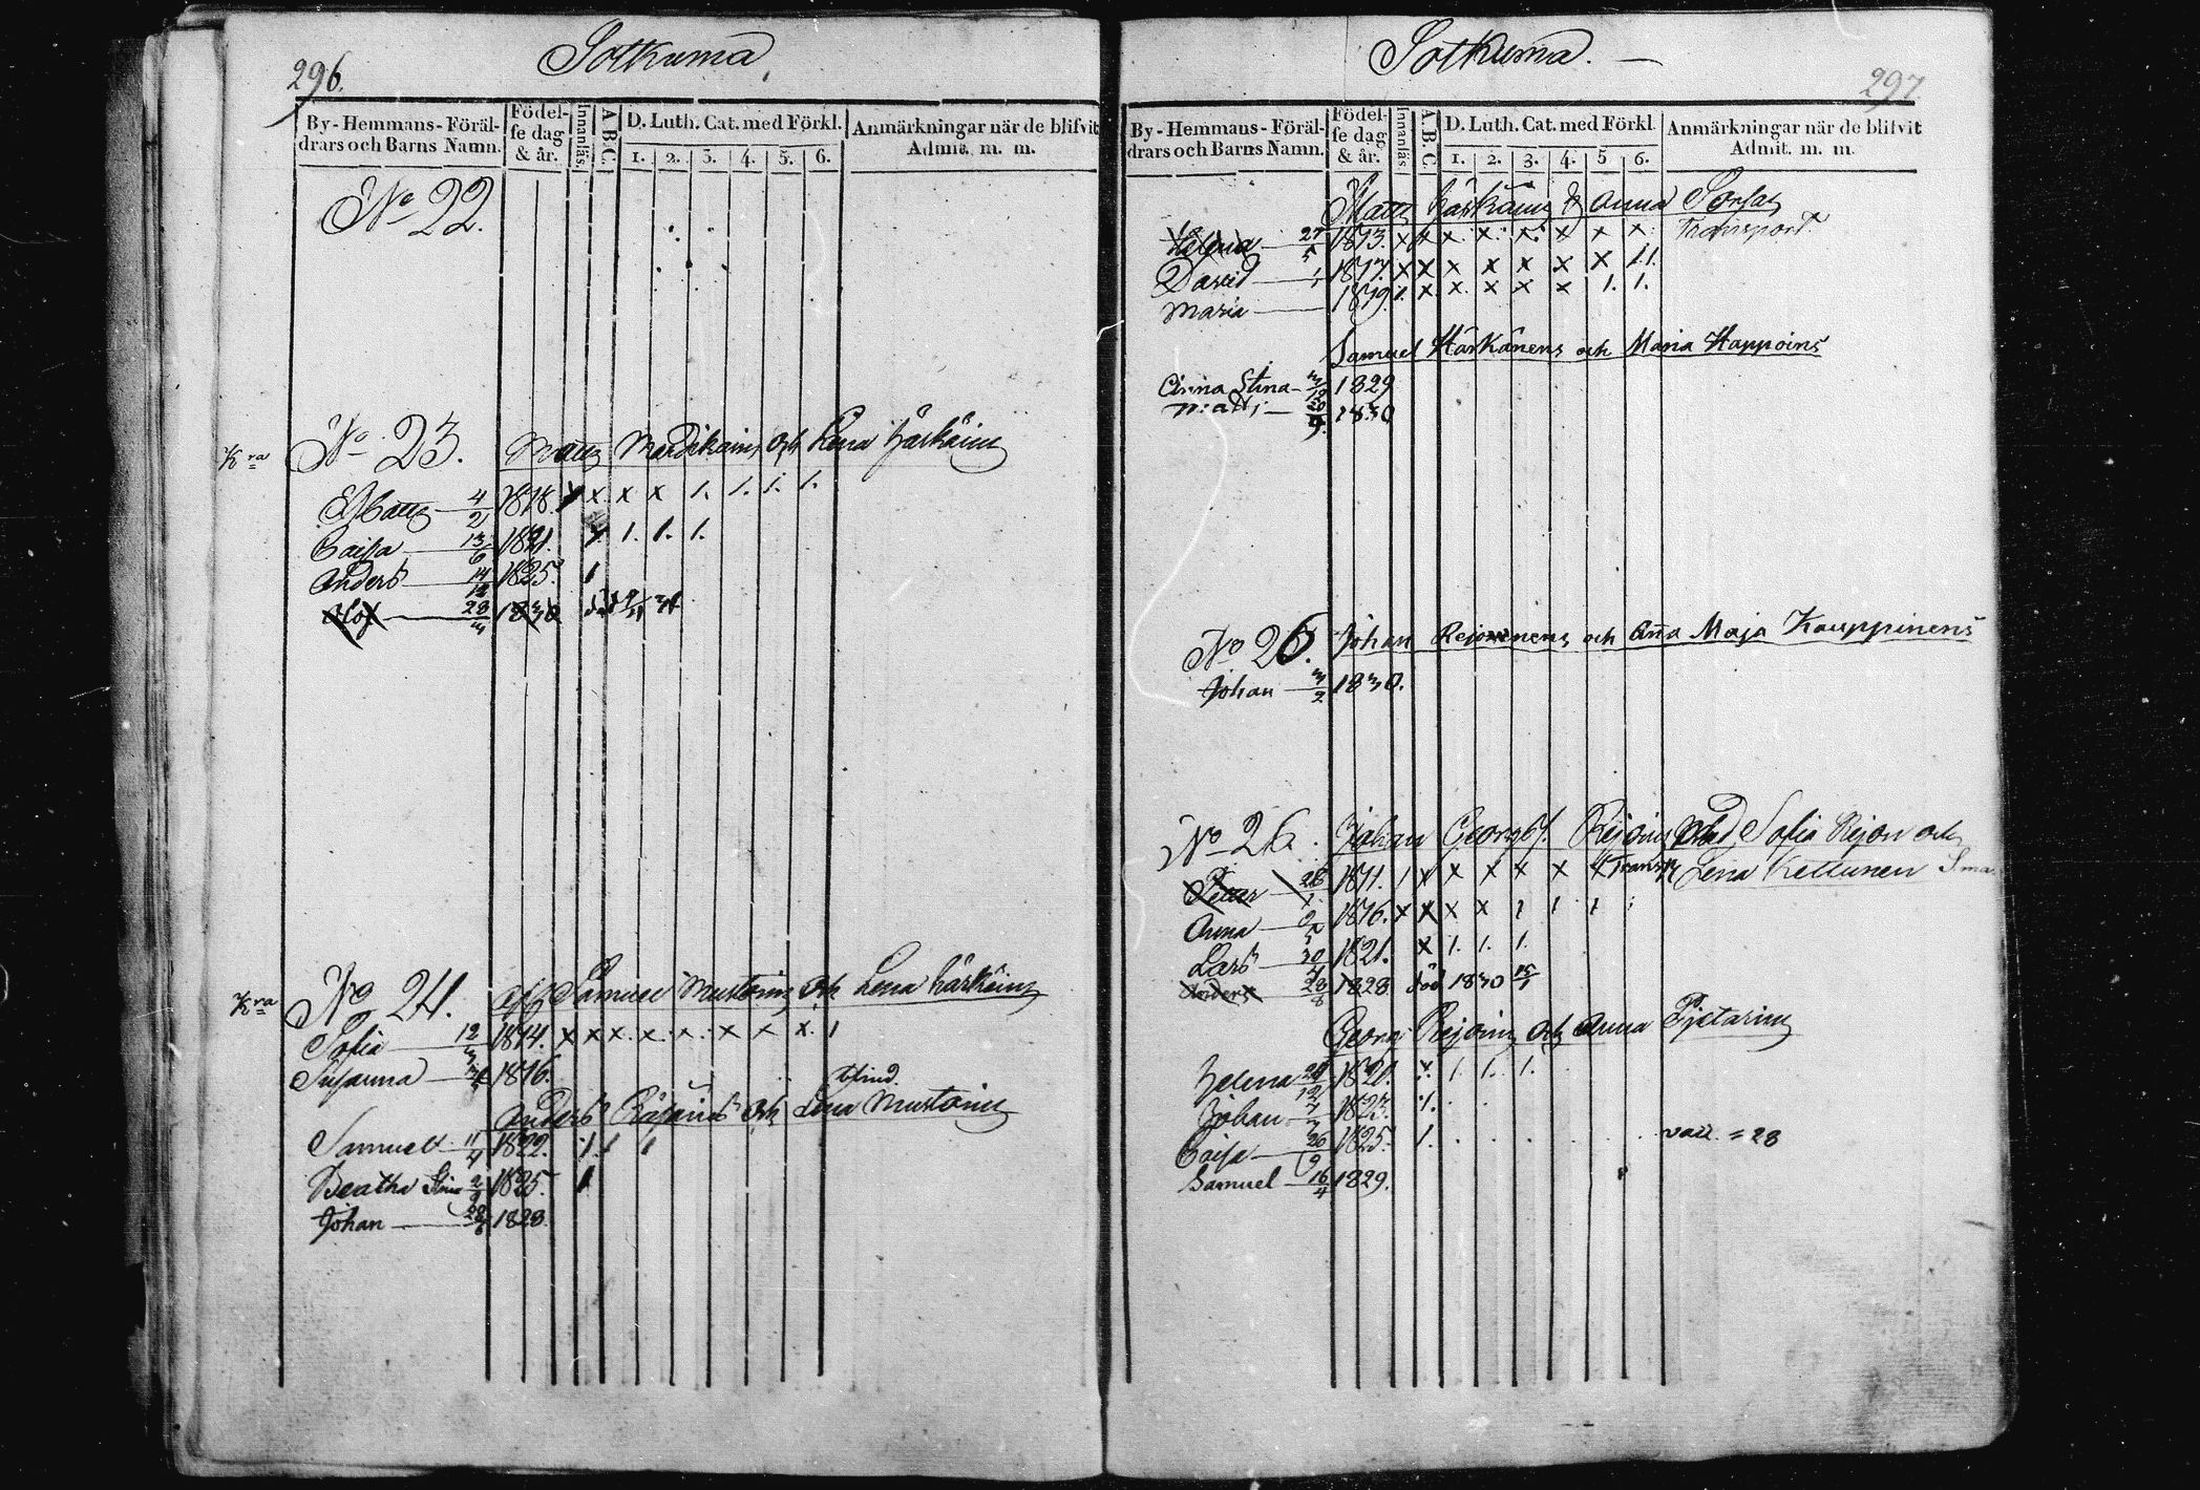 296.
Sotkuma
By-Hemmans-Föräl-
drars och Barns Namn.
Födel-
se dag
& år.
Innanläs.
A B C.
D. Luth. Cat. med Förkl.
1. 2. 3. 4. 5. 6.
Anmärkningar när de blifvit
Admit. m. m.
No 22.
Kra No 23. Matts och Lena Härköins
Matts 4/2 1818. x x x x 1. 1. 1. 1.
Caisa 13/6 1821. x 1. 1. 1.
Anders 14/12 1825. 1
Olof 28/3 1830 död
Kra No 24. Samuel Mustoins och Lena Härköins
Sofia 12/3 1814. x x x x x x x x 1
Susanna 1816. blind.
Anders och Lena Mustoins
Samuel 11/4 1822. 1. 1 1
Beatha Stina 1825. 1
Johan 28/6 1828.
Sotkuma.
297
By-Hemmans-Föräl-
drars och Barns Namn.
Födel-
se dag
& år.
Innanläs.
A. B. C
D. Luth. Cat. med Förkl
1. 2. 3. 4. 5 6.
Anmärkningar när de blifvit
Admit. m. m.
Matts Anna
Helena 1813. x x x x x x x x Transport.
David 1817. x x x x x x x 1.1.
Maria 1819. 1. x x x x x 1. 1.
Samuel Härkänens och Maria Happoins
Anna Stina 1829
Matti 20/9. 1830
No 25. Johan och Anna Maja Kauppinens
Johan 3/2 1830.
No 26. Johan Sofia Rejon och
Petter 28/1 1811. 1 x x x x x x Transp. Lena Kettunen
Anna 1816. x x x x 1 1 1
Lars 30 1821. x 1. 1. 1.
Anders 28/8 1828 död 1830
Georg Rejoins och Anna
Helena 1820. x 1. 1. 1.
Johan 1823. 1.
Caisa 26/9 1825. 1. vacc. = 28
Samuel 16/4 1829.